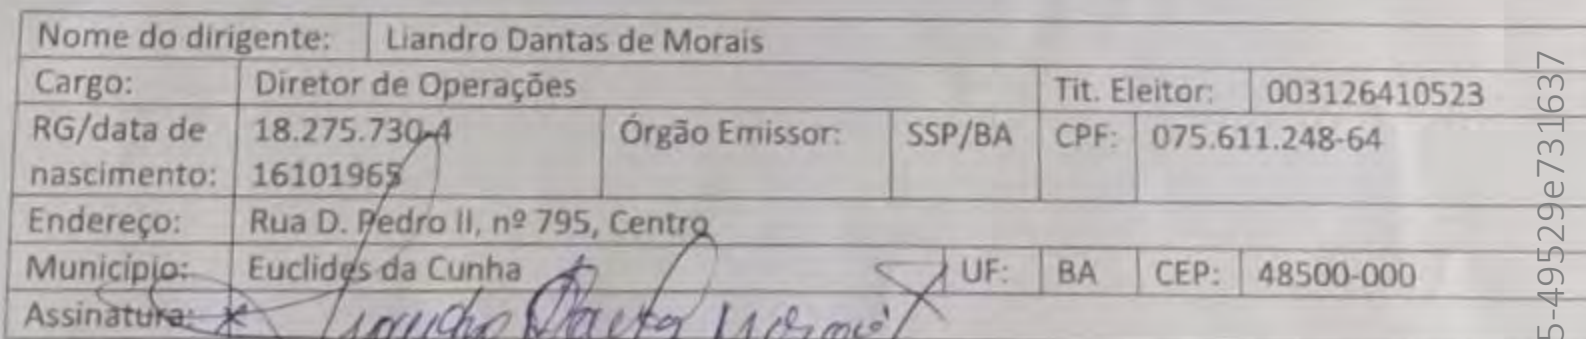 Nome do dirigente: Liandro Dantas de Morais
Cargo: Diretor de Operações Tit. Eleitor: 003126410523
RG/data de nascimento: 18.275.730-4 16101965 Órgão Emissor: SSP/BA CPF: 075.611.248-64
Endereço: Rua D. Pedro II, nº 795, Centro
Município: Euclides da Cunha UF: BA CEP: 48500-000
Assinatura:
5-49529e731637